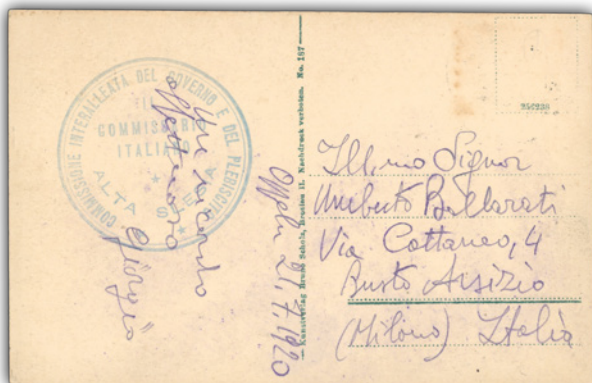 COMMISSIONE INTERALLEATA DEL GOVERNO E DEL PLEBISCITO
IL
COMMISSARIO
ITALIANO
ALTA SLESIA
Un ricordo
affettuoso
Giorgio
Oppeln 21.7.1920
Kunstverlag Bruno Scholz, Breslau II. Nachdruck verboten. No. 187
Ill.mo Signor
Umberto Ballarati
Via Cattaneo, 4
Busto Arsizio
(Milano) Italia